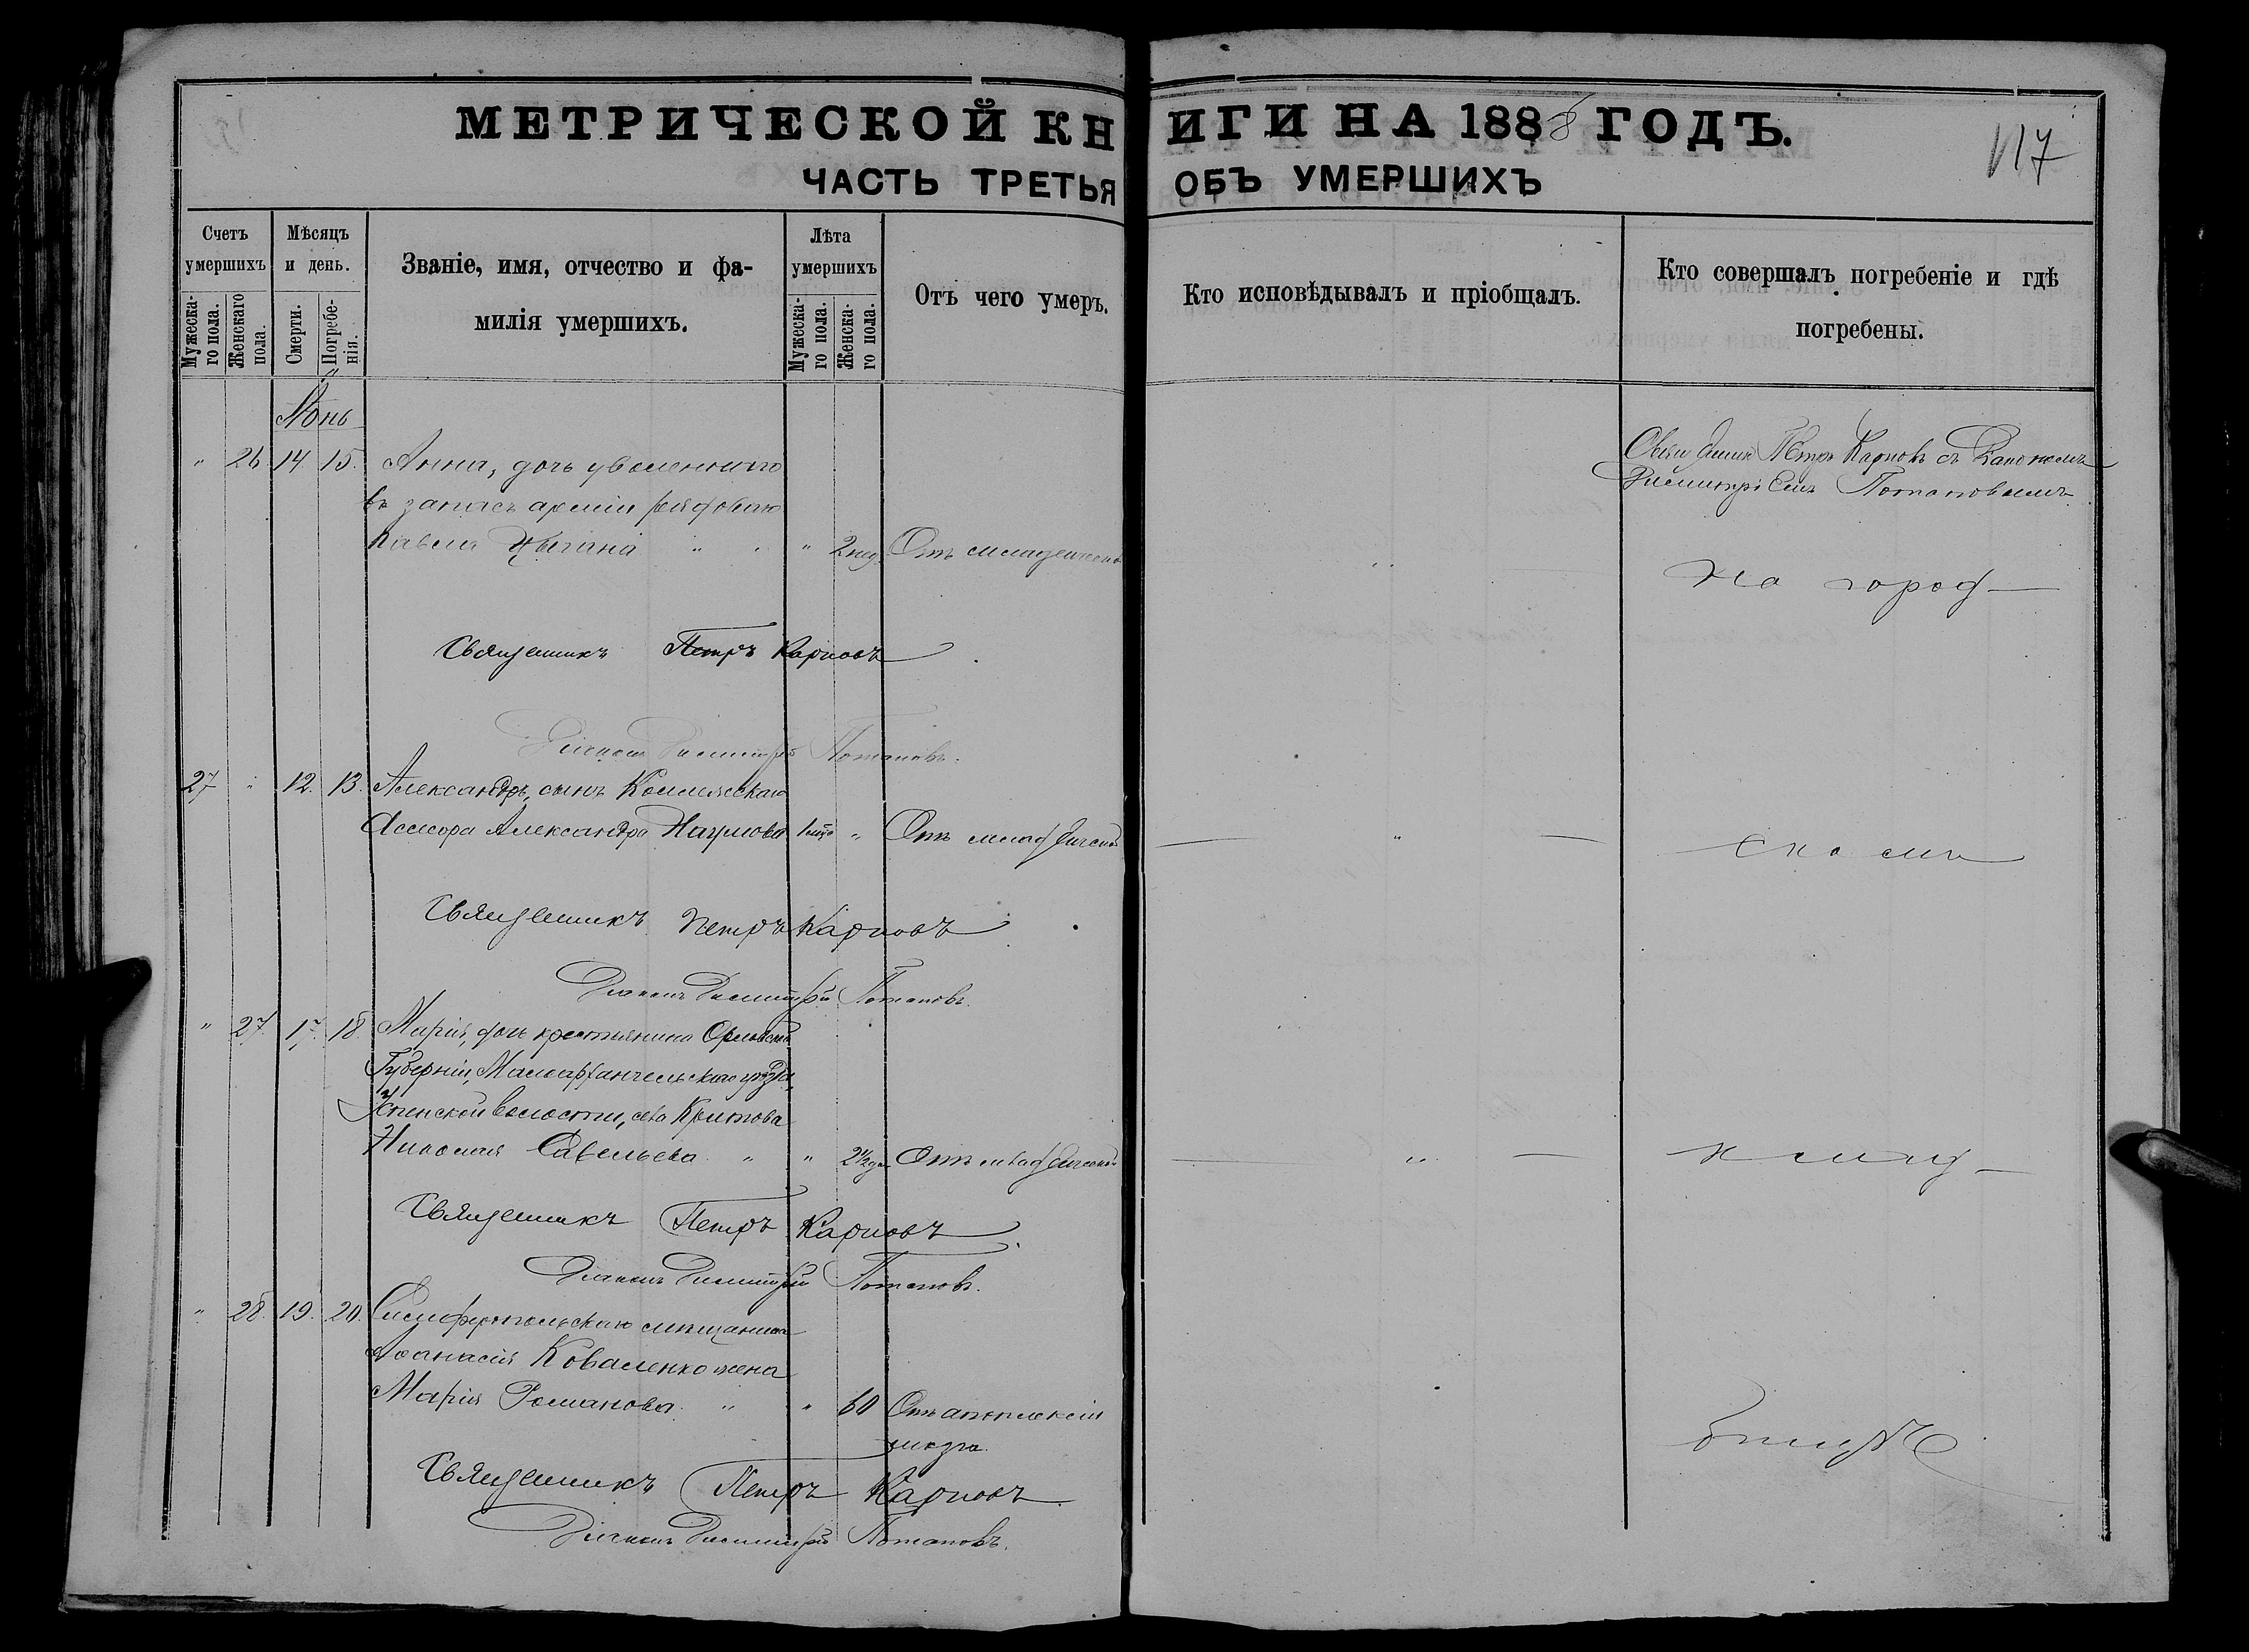 МЕТРИЧЕСКОЙ КНИГИ НА 1888 ГОДЪ.
117
ЧАСТЬ ТРЕТЬЯ ОБЪ УМЕРШИХЪ
Счетъ умершихъ
Мужеска-го пола.
Женскаго пола.
Мѣсяцъ и день.
Смерти.
Погребе-нія.
Званіе, имя, отчество и фа-
милія умершихъ.
Лѣта умершихъ
Мужеска-го пола.
Женска-го пола.
Отъ чего умеръ.
Кто исповѣдывалъ и пріобщалъ.
Кто совершалъ погребеніе и гдѣ
погребены.
Іюнь
" 26 14 15. Анна, дочь уволеннаго
въ запасъ арміи рядового
Павла Цыгана " " " 2 нед. Отъ младенческ
Священник Петръ Карповъ съ Діакономъ
Димитріемъ Потаповымъ
На город
Священникъ Петръ Карповъ
Діаконъ Димитрій Потаповъ.
27 " 12. 13. Александръ, сынъ Коллежскаго
Асессора Александра Наумова 1 мца " Отъ младенческ
"
Священникъ Петръ Карповъ
Діаконъ Димитрій Потаповъ
" 27. 17. 18. Марія, дочь крестьянина Орловской
Губерніи, Малоархангельскаго уѣзда,
Успенской волости, села Критова
Николая Савельева " " 2½ дн Отъ младенческ
"
Священникъ Петръ Карповъ
Діаконъ Димитрій Потаповъ.
" 28. 19. 20. Симферопольскаго мѣщанина
Аѳанасія Коваленко жена
Марія Романова " " 60 Отъ апоплексіи
мозга.
Священникъ Петръ Карповъ
Діаконъ Димитрій Потаповъ.